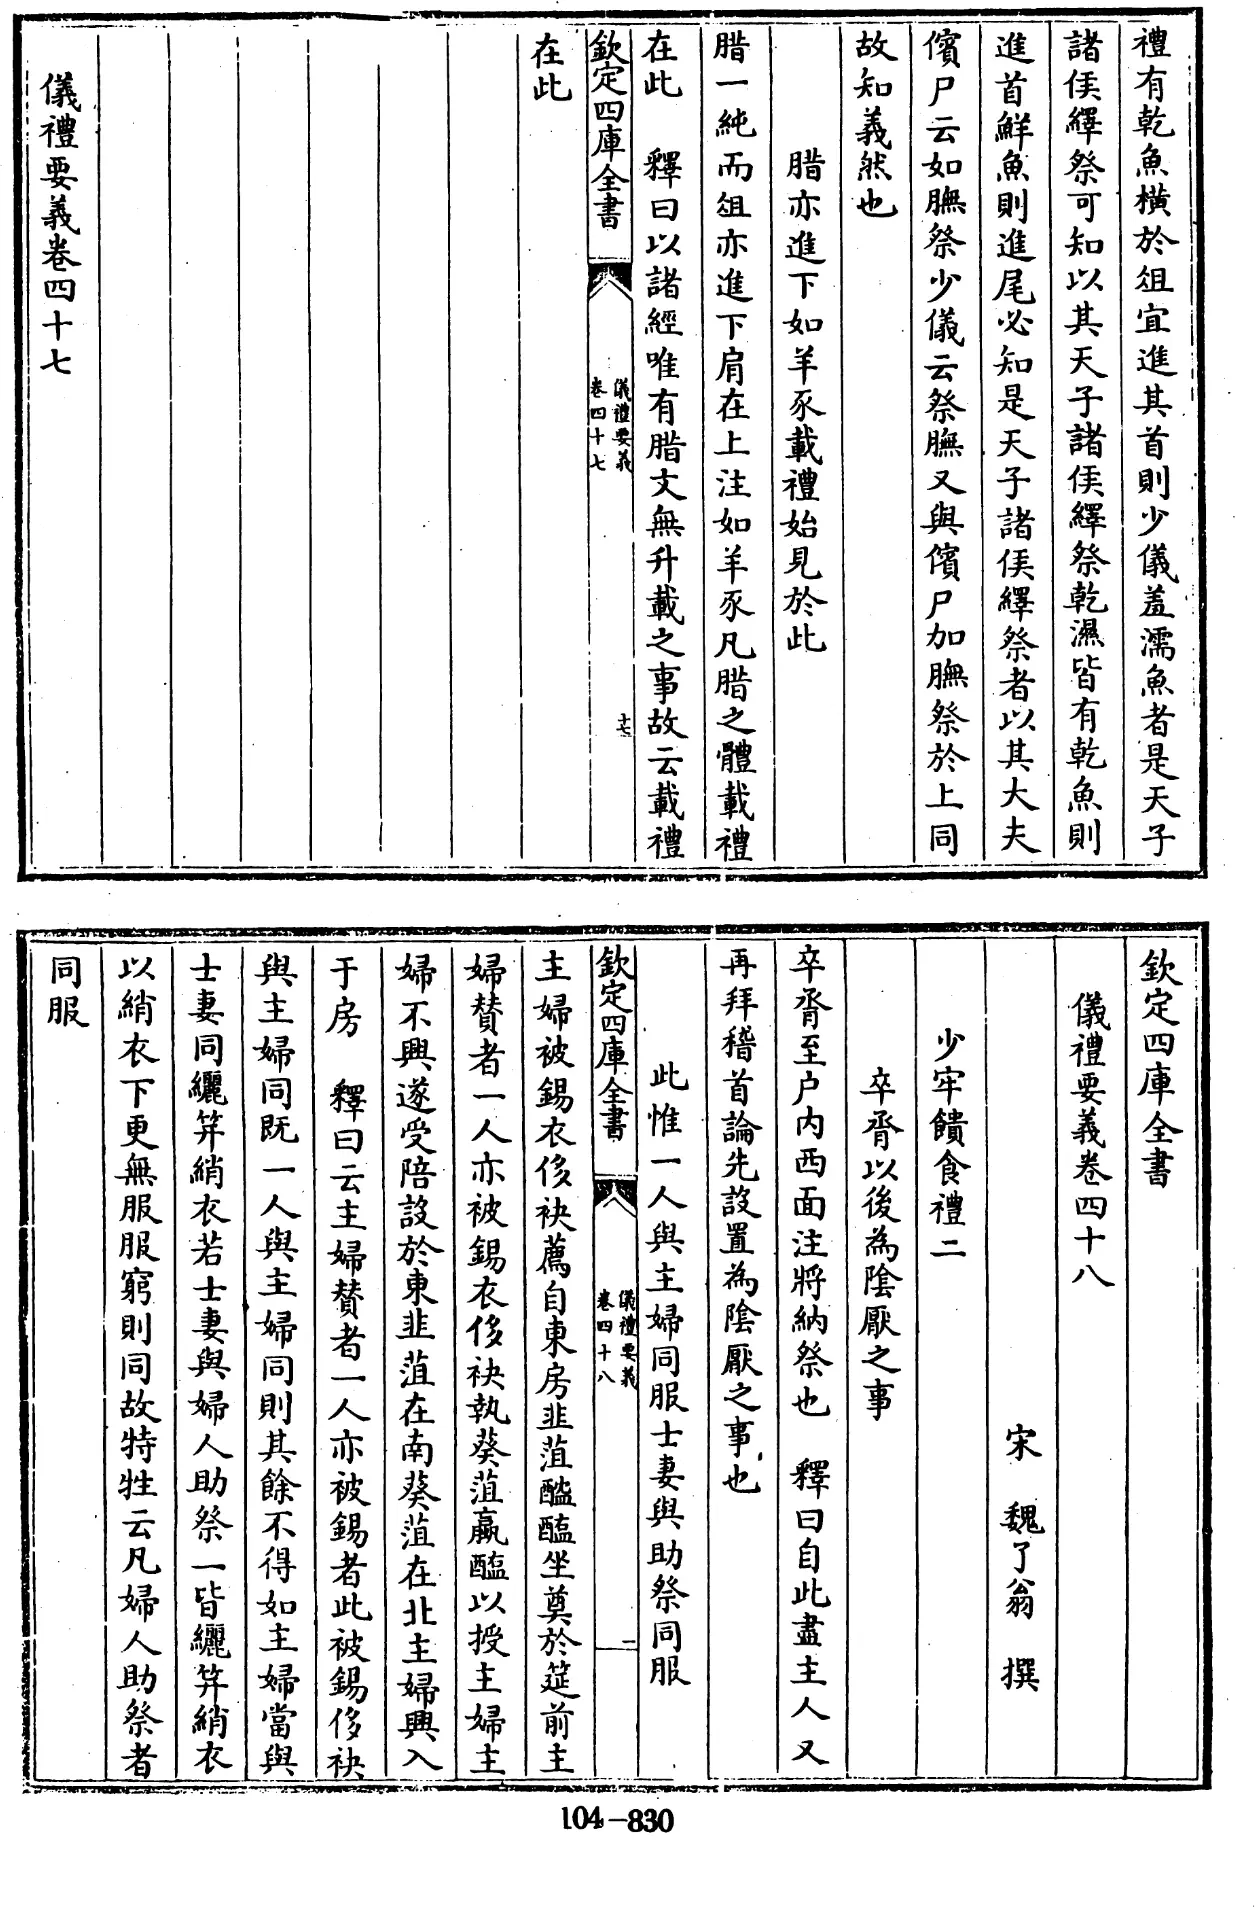 禮有乾魚橫於俎宜進其首則少儀羞濡魚者是天子
諸侯繹祭可知以其天子諸侯繹祭乾濕皆有乾魚則
進首鮮魚則進尾必知是天子諸侯繹祭者以其大夫
儐尸云如膴祭少儀云祭膴又與儐尸加膴祭於上同
故知義然也
腊亦進下如羊豕載禮始見於此
腊一純而俎亦進下肩在上注如羊豕凡腊之體載禮
在此 釋曰以諸經唯有腊文無升載之事故云載禮
欽定四庫全書
儀禮要義
卷四十七
十七
在此
儀禮要義卷四十七
欽定四庫全書
儀禮要義卷四十八
宋 魏了翁 撰
少牢饋食禮二
卒脀以後為陰厭之事
卒脀至户内西面注將納祭也 釋曰自此盡主人又
再拜稽首論先設置為陰厭之事也
此惟一人與主婦同服士妻與助祭同服
欽定四庫全書
儀禮要義
卷四十八
一
主婦被錫衣侈袂薦自東房韭菹醓醢坐奠於筵前主
婦贊者一人亦被錫衣侈袂執葵菹蠃醢以授主婦主
婦不興遂受陪設於東韭菹在南葵菹在北主婦興入
于房 釋曰云主婦贊者一人亦被錫者此被錫侈袂
與主婦同既一人與主婦同則其餘不得如主婦當與
士妻同纚笄綃衣若士妻與婦人助祭一皆纚笄綃衣
以綃衣下更無服服窮則同故特牲云凡婦人助祭者
同服
104-830